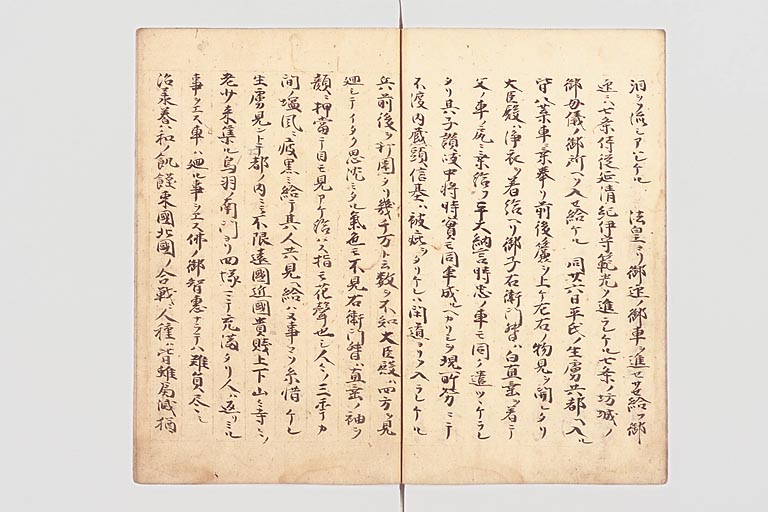 泪ヲソ流シアハレケル 法皇ヨリ御迎ノ御車ヲ進セサセ給フ御
迎ニハ七条侍従延清紀伊守範光ソ進ラレケル七条ノ坊城ノ
御母儀ノ御所ヘソ入セ給ケル 同廿六日平氏ノ生虜共都ヘ入ル
皆八葉車ニ乗奉リ前後ノ簾ヲ上ケ左右ノ物見ヲ開ケタリ
大臣殿ハ浄衣ヲ着給ヘリ御子右衛門督ハ白直垂ヲ着テ
父ノ車ノ尻ニ乗給フ平大納言時忠ノ車モ同ク遣ツヽケラレ
タリ其ノ子讃岐中将時實モ同車成ヘカリシヲ現所労ニテ
不渡内蔵頭信基ハ被疵タリケレハ閑道ヨリソ入ラレケル
兵前後ヲ打囲タリ幾千万ト云数ヲ不知大臣殿ハ四方ヲ見
廻シテイタク思沈ミタル氣色モ不見右衛門督ハ直垂ノ袖ヲ
顔ニ押當テ目モ見アケ給ハス
間ノ塩風ニ疲黒ミ給テ其人共見ヘ給ハス
生虜見ントテ都ノ内ニモ不限遠國近國貴賤上下山々寺々ノ
老少来集ル鳥羽ノ南門ヨリ四塚ニテ充満タリ人ハ返リミル
事ヲエス車ハ廻ル事ヲエス佛ノ御智恵ナラテハ難算尽シ
治承養和ノ飢饉東國北國ノ合戦ニ人種ハ皆雖